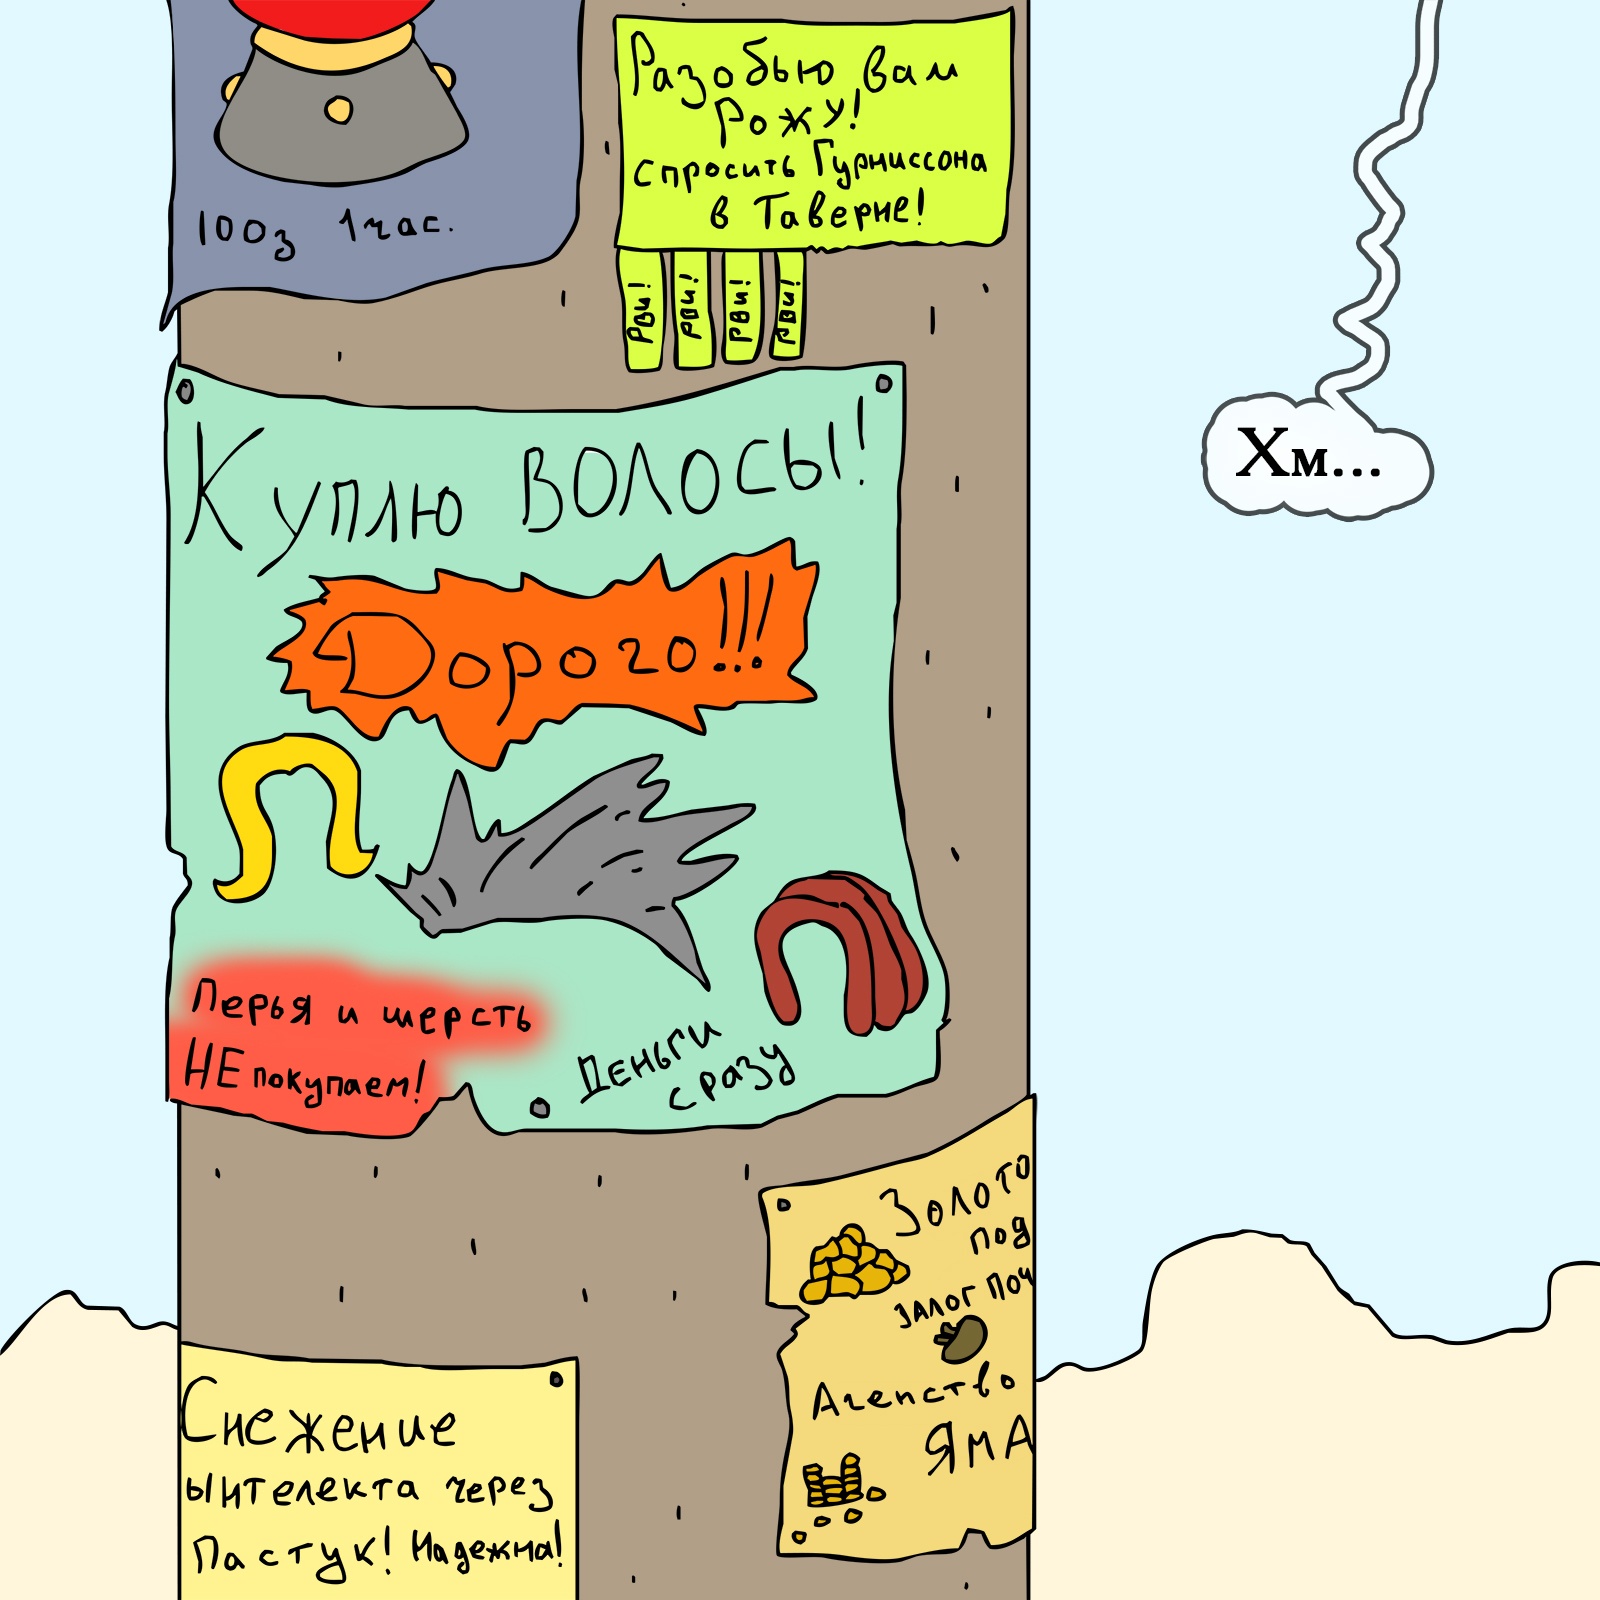 100з 1час.
Разобью вам
Рожу!
спросить Гурниссона
в Таверне!
Рви!
рви!
рви!
рви!
Куплю волосы!
Дорого!!!
Хм...
Перья и шерсть
НЕ покупаем!
Деньги
сразу
Золото
под
залог поч
Агенство
ЯМА
Снежение
ынтелекта через
Пастук! Надежна!